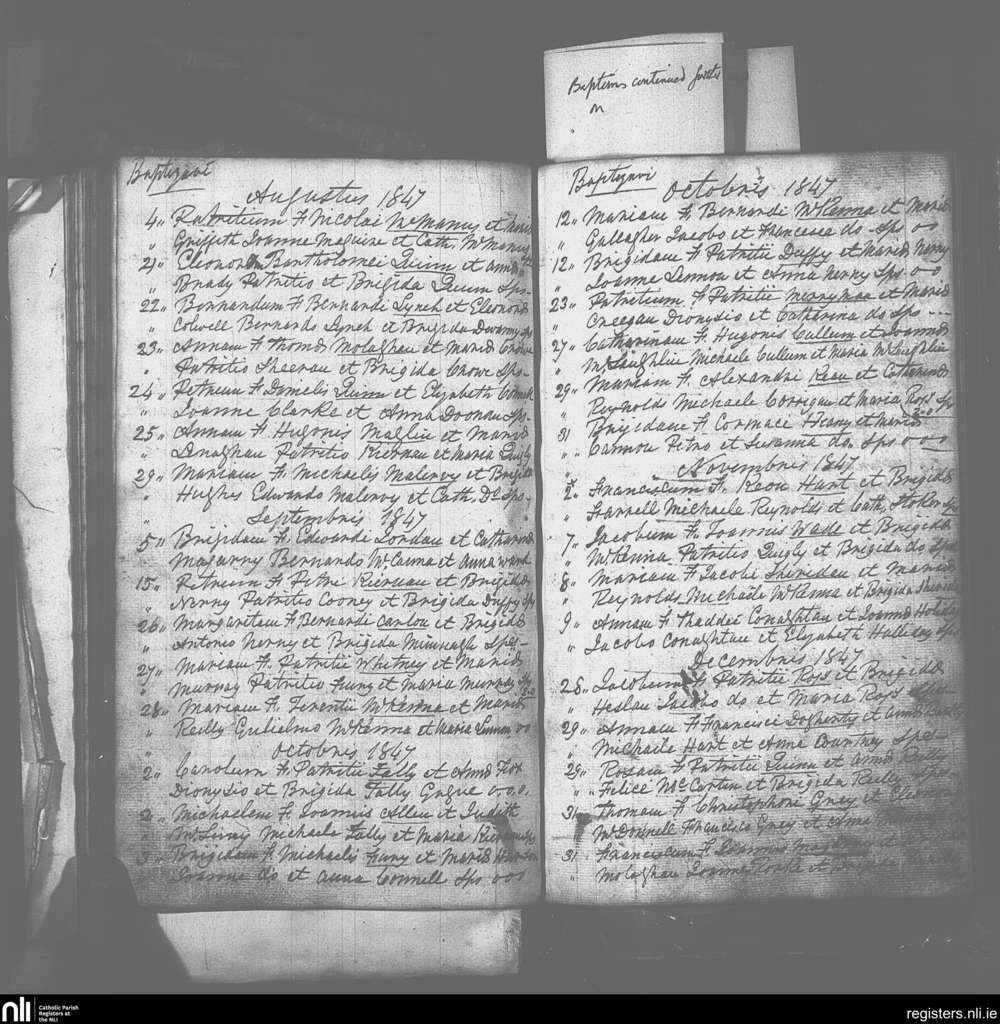 Baptisms continued further
on
Baptizavi
Augustus 1847
4 " Patritium F Nicolai McManus et Maria
" Griffith Joanne Maguire et Cath. McManus
21 " Bartholomei Quinn et Anna
" Brady Patritio et Brigida Quinn Sps.
22 " Bernardum F Bernardi Lynch et Eleonora
" Colwell Bernardo Lynch et Brigida
23 " Annam F Thoma Molaghan et Maria Crowe
" Patritio Sheeran et Brigida Crowe Sps.
24 " Petrum F Danielis Quinn et Elizabeth
" Joanne Clarke et Anna Doonan Sps.
25 " Annam F Hugonis et Maria
" Lenaghan Patritio Kiernan et Maria Quigly
29 " Mariam F Michaelis Maleroy et Brigida
" Hughes Edwardo Maleroy et Cath. Do Sps.
" Septembris 1847
5 " Brigidam F Edwardi et Catharina
" Magarry Bernardo McCanna et Anna Ward
15 " Petrum F Petri Kiernan et Brigida
" Nerny Patritio Cooney et Brigida Duffy Sps
26 " Margaretam F Bernardi Carlon et Brigida
" Antonio Nerny et Brigida Sps.
27 " Mariam F. Patritii Whitney et Maria
" Murray Patritio et Maria Murray Sps
28 " Mariam F. Terentii McKenna et Maria
" Reilly Gulielmo McKenna et Maria Lennon oo
" Octobris 1847
2 " Carolum F. Patritii Fally et Anna Fox
Dionysio et Brigida Fally ooo.
2 " Michaelem F. Joannis Allen et Judith
" Michaele Fally et Maria Kiernan Sps
3 " Brigidam F Michaelis et Maria
Joanne do et Anna Connell Sps ooo
Baptizavi
Octobris 1847
12 " Mariam F. Bernardi McKenna et Maria
" Gallagher Jacobo et Francesca do Sps oo
12 " Brigidam F Patritii Duffy et Maria Nerny
" Joanne Lennon et Anna Nerny Sps oo
23 " Patritium F Patritii Merryman et Maria
" Creegan Dionysio et Catharina do Sps ---
27 " Catharinam F Hugonis Cullum et Joanna
" McLaughlin Michaele Cullum et Maria McLaughlin
29 " Mariam F. Alexandri et Catharina
" Reynolds Michaele Corrigan et Maria Ross Sps
31 Brigidam F Cormaci Heany et Maria
" " Cannon Petro et Susanna do. Sps ooo
" Novembris 1847
2 " Franciscum F. Keon Hart et Brigida
" Farrell Michaele Reynolds et Cath. Stoker Sps
7 " Jacobum F. Joannis Wade et Brigida
" McKenna Patritio Quigly et Brigida do Sps
8 " Mariam F Jacobi Sheridan et Maria
" Reynolds Michaele McKenna et Brigida
9 " Annam F Thaddei Conaghtan et Joanna Holiday
" Jacobo Conaghtan et Elizabeth Holliday Sps
Decembris 1847
28 " Jacobum F Patritii Ross et Brigida
" Heslan Jacobo do et Maria Ross
29 " Annam F Francisci Dogherty et Anna
" Michaele Hart et Anna Courtney Sps.
29 " Rosam F Patritii Quinn et Anna Reilly
" " Felice McCartin et Brigida Reilly Sps
31 " Thomam F Christophori Gray et Eleonora
" McDonnell Francisco Grey et Anna
31 Franciscum F Joannis et
" Molaghan Joanne Rorke et
nli
Catholic Parish
Registers at
the NLI
registers.nli.ie